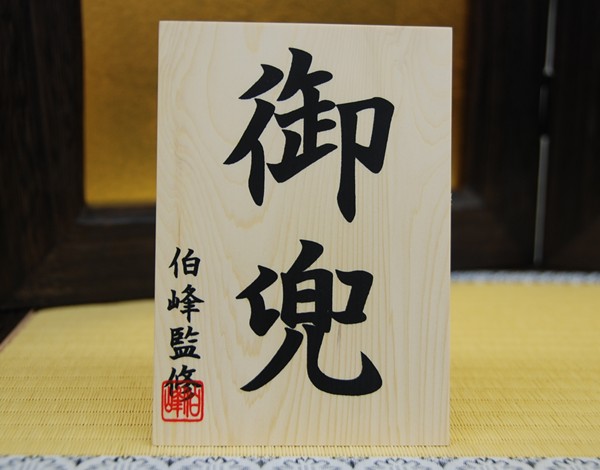 御兜
伯峰監修
伯峰